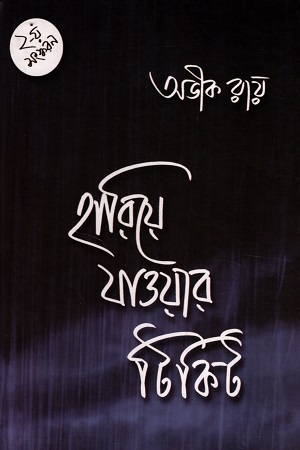 ২য়
সংস্করন
অভীক রায়
হারিয়ে
যাওয়ার
টিকিট